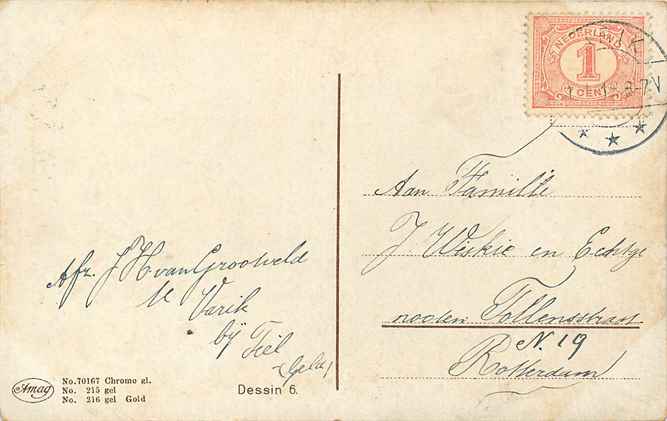 NEDERLAND
1
CENT
Aan Familie
J Wiskie en Echtge
nooten Tollensstraat
N. 19
Rotterdam
Afz. J H van Grootveld
te Varik
bij Tiel
(Geld)
Amag
No. 70167 Chromo gl.
No. 215 gel
No. 216 gel Gold
Dessin 6.